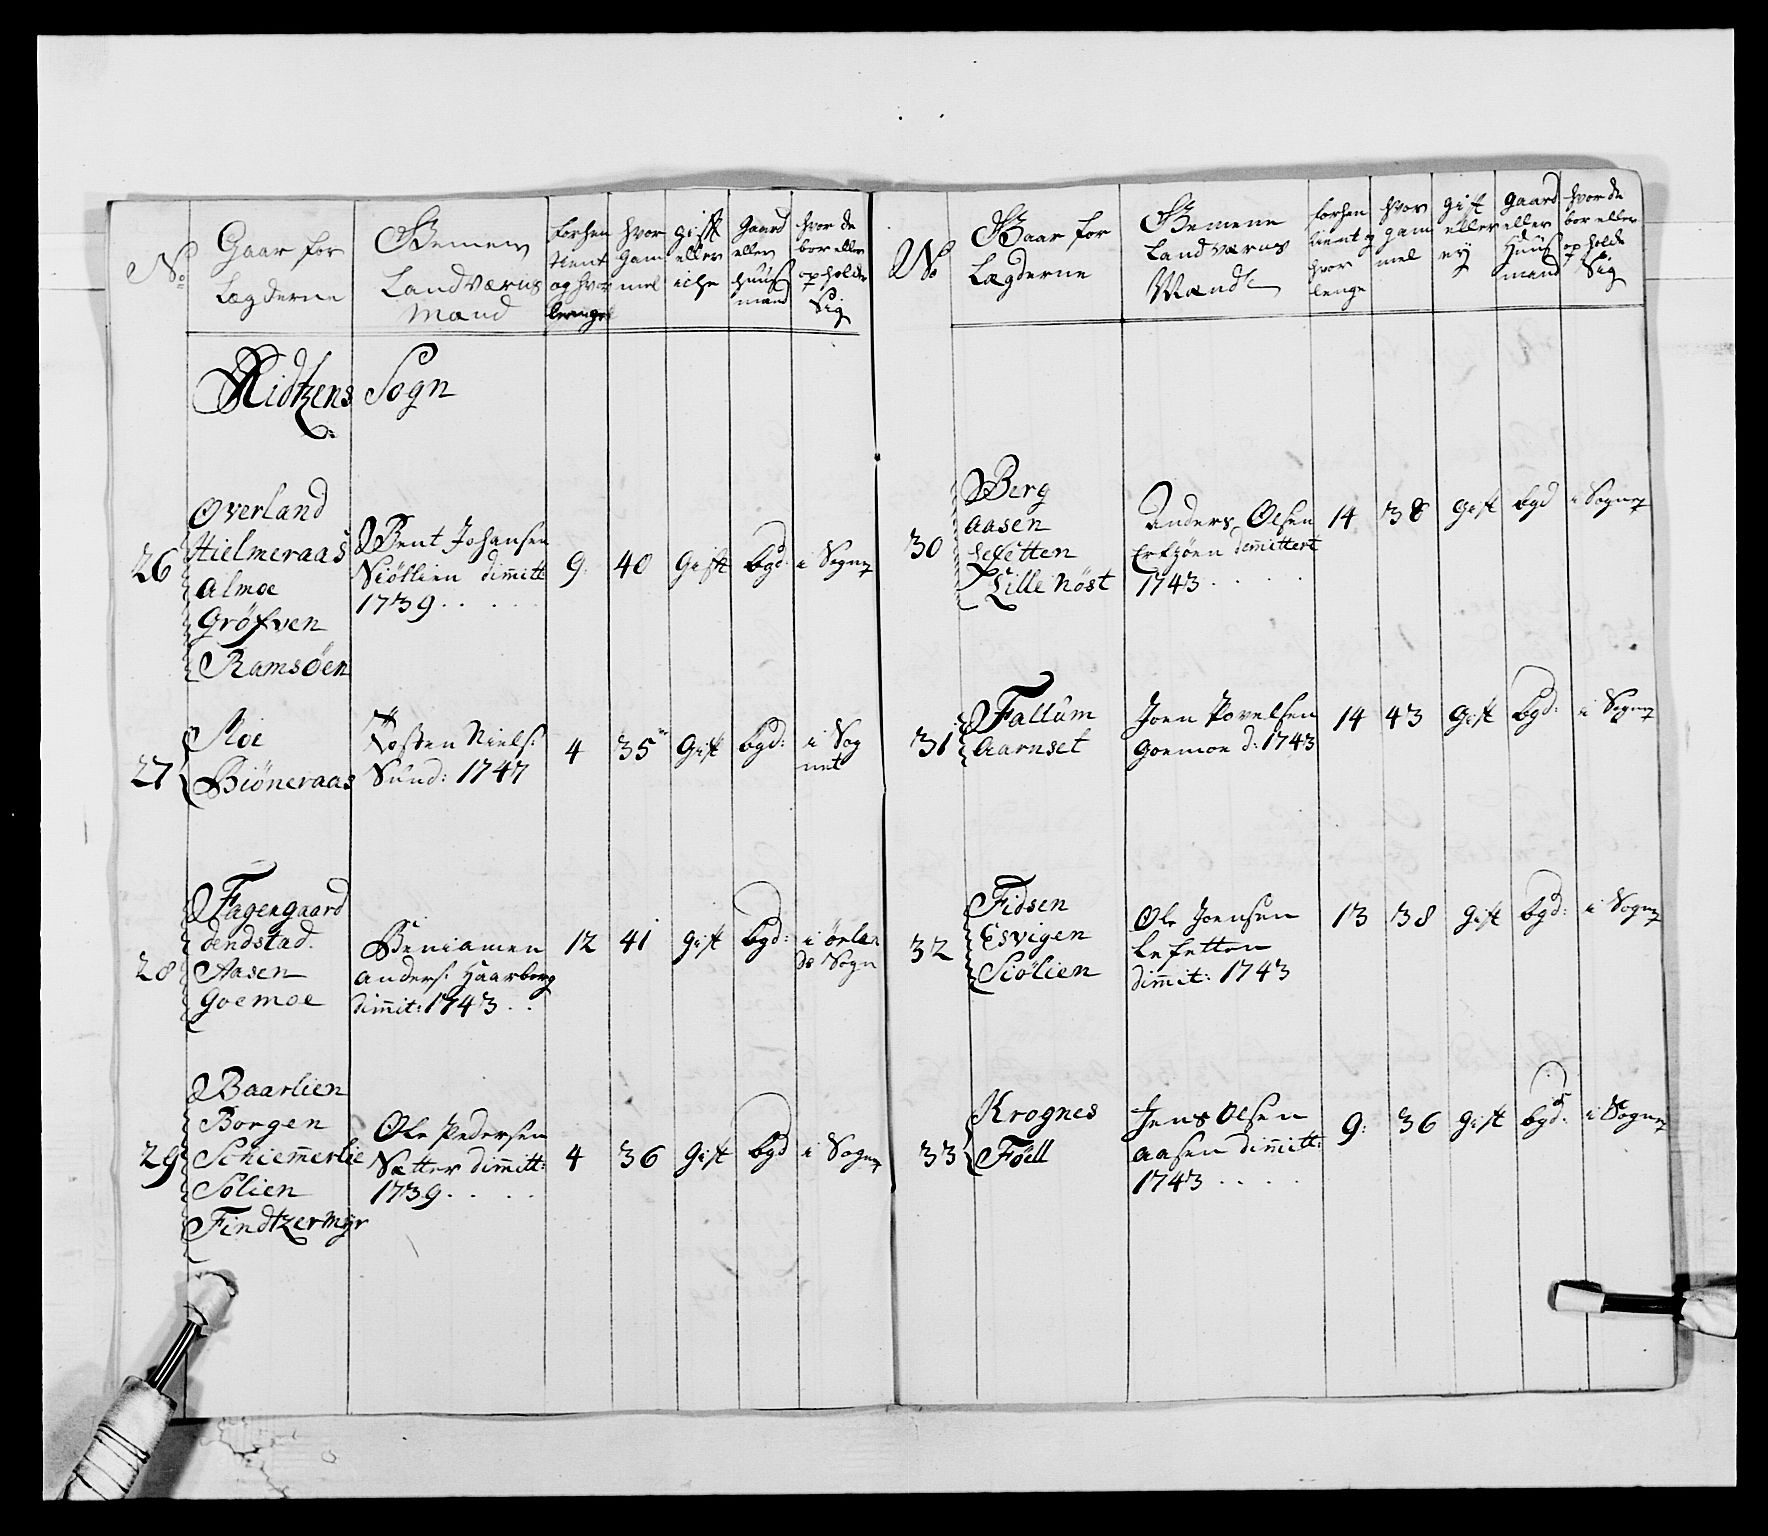 No
Gaar for
Lægderne
Gemen
Landværns
Mand
forhen
tient
og hvor
lenge
hvor
gam
mel
gift
eller
iche
gaard
eller
huus
mand
hvor de
bor eller
opholde
Sig
Ridtzens Sogn
26
Overland
Hielmeraas
Almoe
Gröfven
Ramsöen
Bent Johansen
Siöllien dimitt
1739 . . . . .
9: 40 Gift bgd: i Sognet
27
Moe
Biöneraas
Tosten Niels:
Sund: 1747
4 35 Gift bgd: i Sog
net
28
Fagengaard
Dendstad.
Aasen
Goemoe
Beniamen
Anders: Haarberg
dimit: 1743 . .
12 41 gift bgd: i Örlan
ds Sogn
29
Baarlien
Borgen
Schiemerlie
Solien
Findtzermyr
Ole Pedersen
Sætter dimitt:
1739 . . . . .
4 36 gift bgd i Sognet
No
Gaar for
Lægderne
Gemene
Landværns
Mandl
forhen
tient og
hvor
lenge
hvor
gam
mel
gift
eller
ey
gaard
eller
Huus
mand
hvor de
bor eller
opholde
Sig
30
Berg
Aasen
Lefetten
Lille Nöst
Anders Olsen
Erfyöen demittert
1743 . . . . .
14 38 gift bgd i Sognet
31
Fallum
Aarnset
Joen Povelsen
Goemoe d: 1743
14 43 Gift bgd: i Sognet
32
Fidsen
Esvigen
Siölien
Ole Joensen
Lefetten
dimit: 1743
13 38 gift bgd: i Sognet
33
Krognes
Föll
Jens Olsen
Aasen dimitt:
1743 . . . . .
9: 36 gift bgd: i Sognet